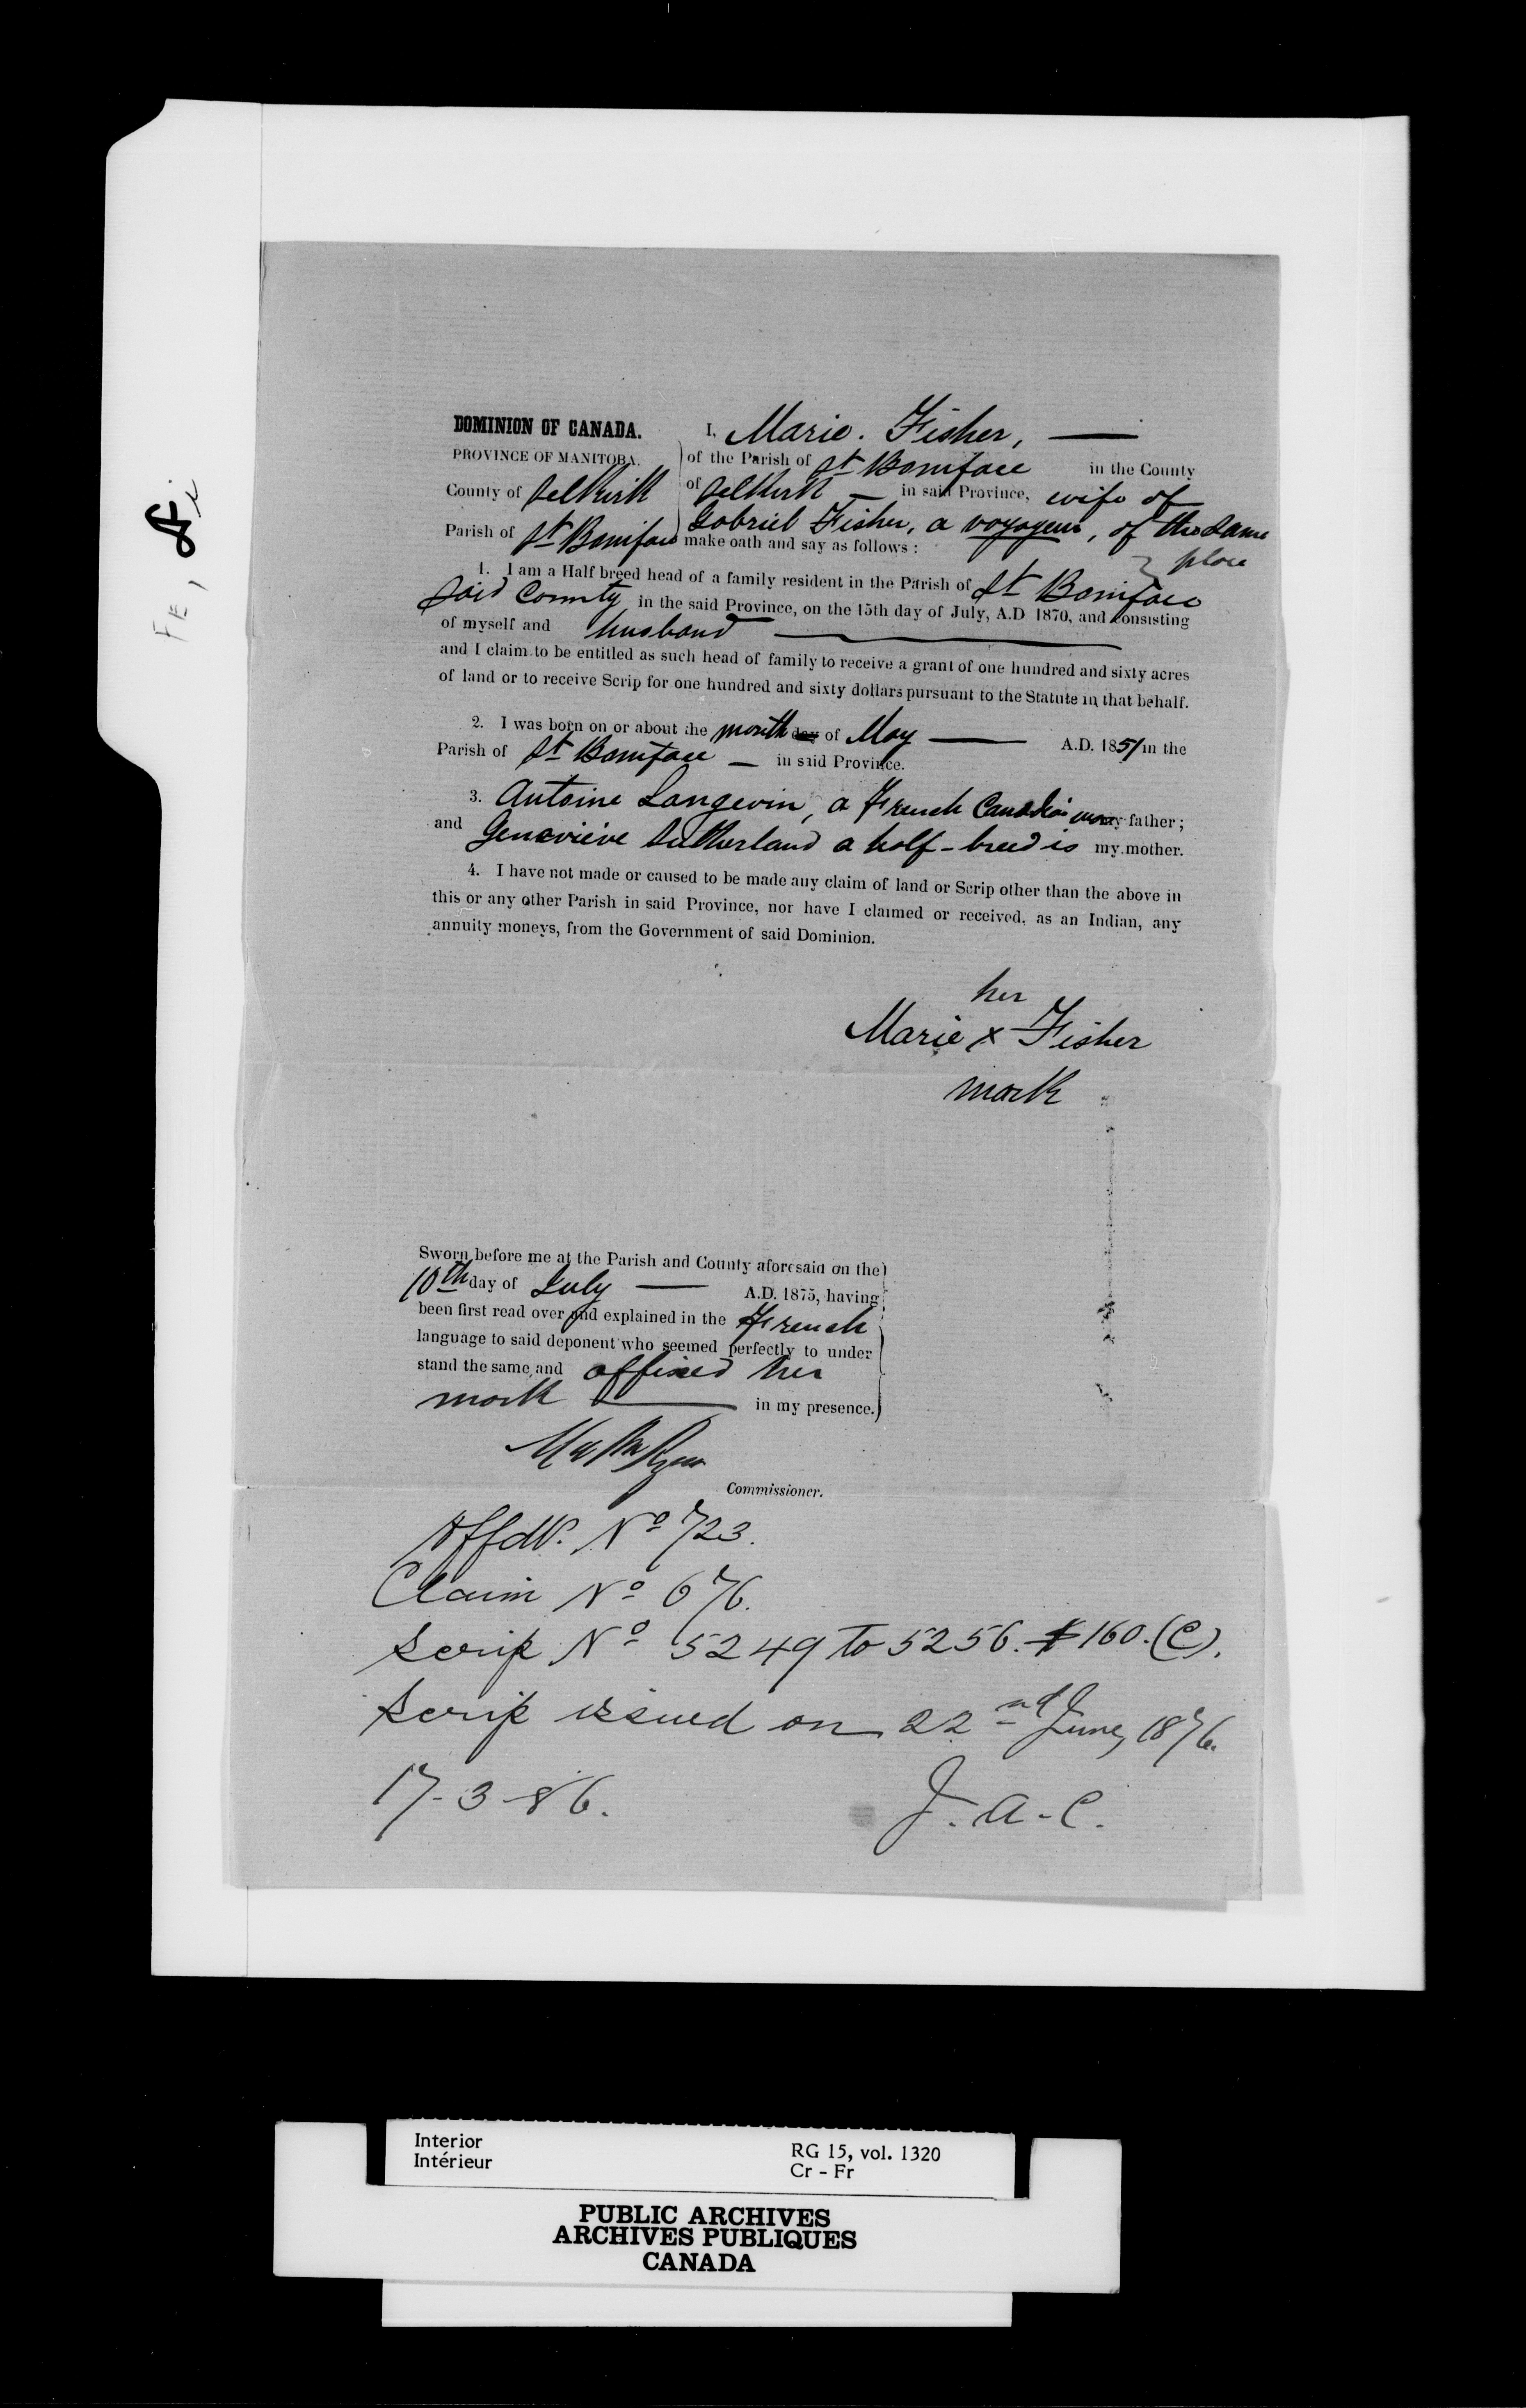 DOMINION OF CANADA.
PROVINCE OF MANITOBA.
County of Selkirk
Parish of St Boniface
I, Marie Fisher, —
of the Parish of St Boniface in the County
of Selkirk — in said Province, wife of
Gabriel Fisher, a voyageur, of the same
place
make oath and say as follows :
1. I am a Half breed head of a family resident in the Parish of St Boniface
said County in the said Province, on the 15th day of July, A.D 1870, and consisting
of myself and husband —
and I claim to be entitled as such head of family to receive a grant of one hundred and sixty acres
of land or to receive Scrip for one hundred and sixty dollars pursuant to the Statute in that behalf.
2. I was born on or about the month day of May — A.D. 1851 in the
Parish of St Boniface — in said Province.
3. Antoine Langevin, a French Canadian was my father;
and Genevieve Sutherland a half-breed is my mother.
4. I have not made or caused to be made any claim of land or Scrip other than the above in
this or any other Parish in said Province, nor have I claimed or received, as an Indian, any
annuity moneys, from the Government of said Dominion.
her
Marie x Fisher
mark
Sworn before me at the Parish and County aforesaid on the
10th day of July — A.D. 1875, having
been first read over and explained in the French
language to said deponent who seemed perfectly to under
stand the same and affixed her
mark — in my presence.
Commissioner.
Affdt. No 723.
Claim No 676.
Scrip No 5249 to 5256. $160. (C).
Scrip issued on 22nd June, 1876.
17-3-86.
J. A. C.
Fi
FE,
Interior
Intérieur
RG 15, vol. 1320
Cr - Fr
PUBLIC ARCHIVES
ARCHIVES PUBLIQUES
CANADA